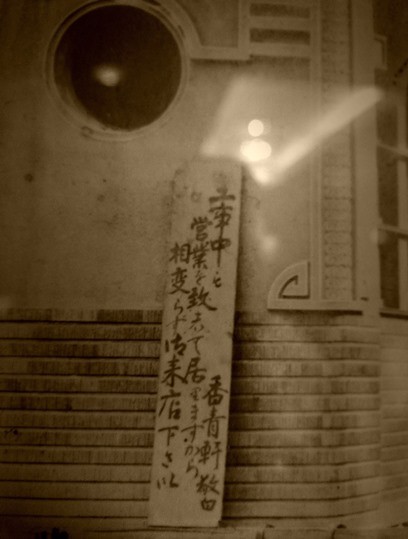 工事中も
営業を致して居りますから
相変らず御来店下さい
番青軒 敬白